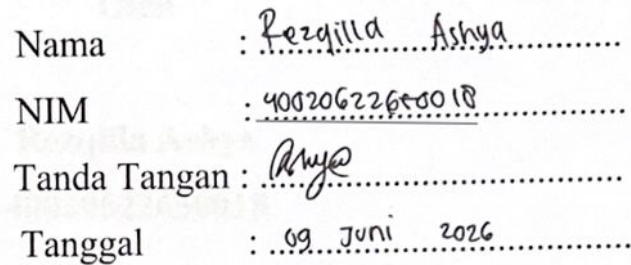 Nama : Rezqilla Ashya
NIM : 40020622650018
Tanda Tangan : Ashya
Tanggal : 09 Juni 2026